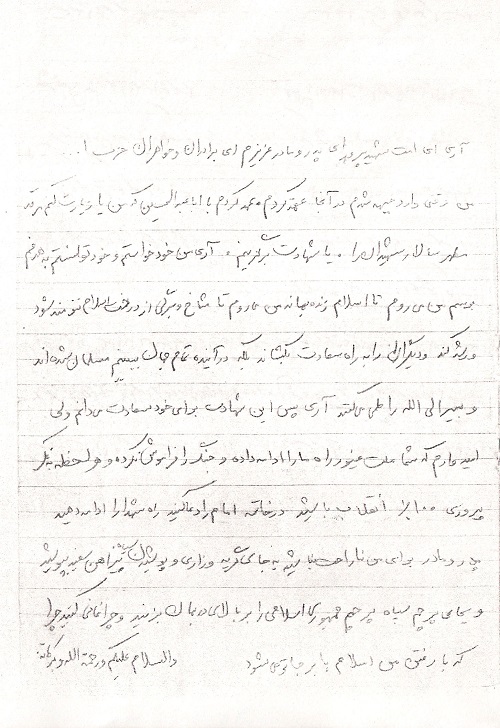 آری ای امت شهیدپرور ای پدر و مادر عزیزم ای برادران و خواهران حزب ا...
من وقتی وارد جبهه شدم در آنجا عهد کردم عهد کردم با اباعبدالحسین که من یا زیارت کنم مرقد
مطهر سالار شهیدان را یا شهادت برگزینم . آری من خود خواستم و خود توانستم به هدفم
برسم من می روم تا اسلام زنده بماند من می روم تا شاخ و برگی از درخت اسلام تنومند شود
و رشد کند و دیگران را به راه سعادت بکشاند بلکه در آینده تمام جهان ببینیم مسلمان شده اند
و سیر الی الله را طی می کنند آری پس این شهادت برای خود سعادت می دانم ولی
امید دارم که شما ملت غیور راه ما را ادامه داده و جنگ را فراموش نکرده و هر لحظه به فکر
پیروزی انقلاب باشید در خاتمه امام را دعا کنید راه شهدا را ادامه دهید
پدر و مادر برای من ناراحت نباشید به جای گریه و زاری و پوشیدن پیراهن سفید بپوشید
و بجای پرچم سیاه پرچم جمهوری اسلامی را بر بالای بزنید و چراغانی کنید چرا
که با رفتن من اسلام پا بر جا تر می شود والسلام علیکم و رحمة الله و برکاته